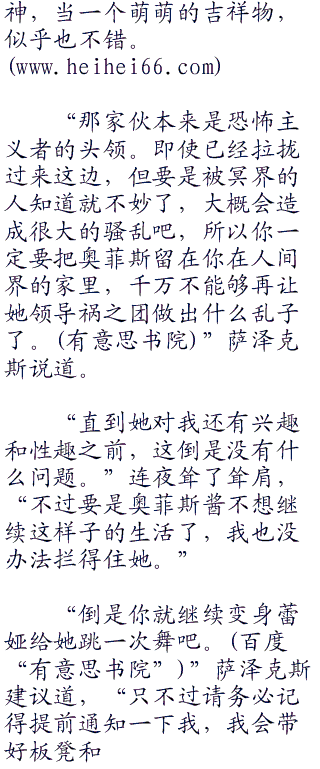 神，当一个萌萌的吉祥物，
似乎也不错。
(www.heihei66.com)
“那家伙本来是恐怖主
义者的头领。即使已经拉拢
过来这边，但要是被冥界的
人知道就不妙了，大概会造
成很大的骚乱吧，所以你一
定要把奥菲斯留在你在人间
界的家里，千万不能够再让
她领导祸之团做出什么乱子
了。(有意思书院)”萨泽克
斯说道。
“直到她对我还有兴趣
和性趣之前，这倒是没有什
么问题。”连夜耸了耸肩，
“不过要是奥菲斯酱不想继
续这样子的生活了，我也没
办法拦得住她。”
“倒是你就继续变身蕾
娅给她跳一次舞吧。(百度
“有意思书院”)”萨泽克斯
建议道，“只不过请务必记
得提前通知一下我，我会带
好板凳和